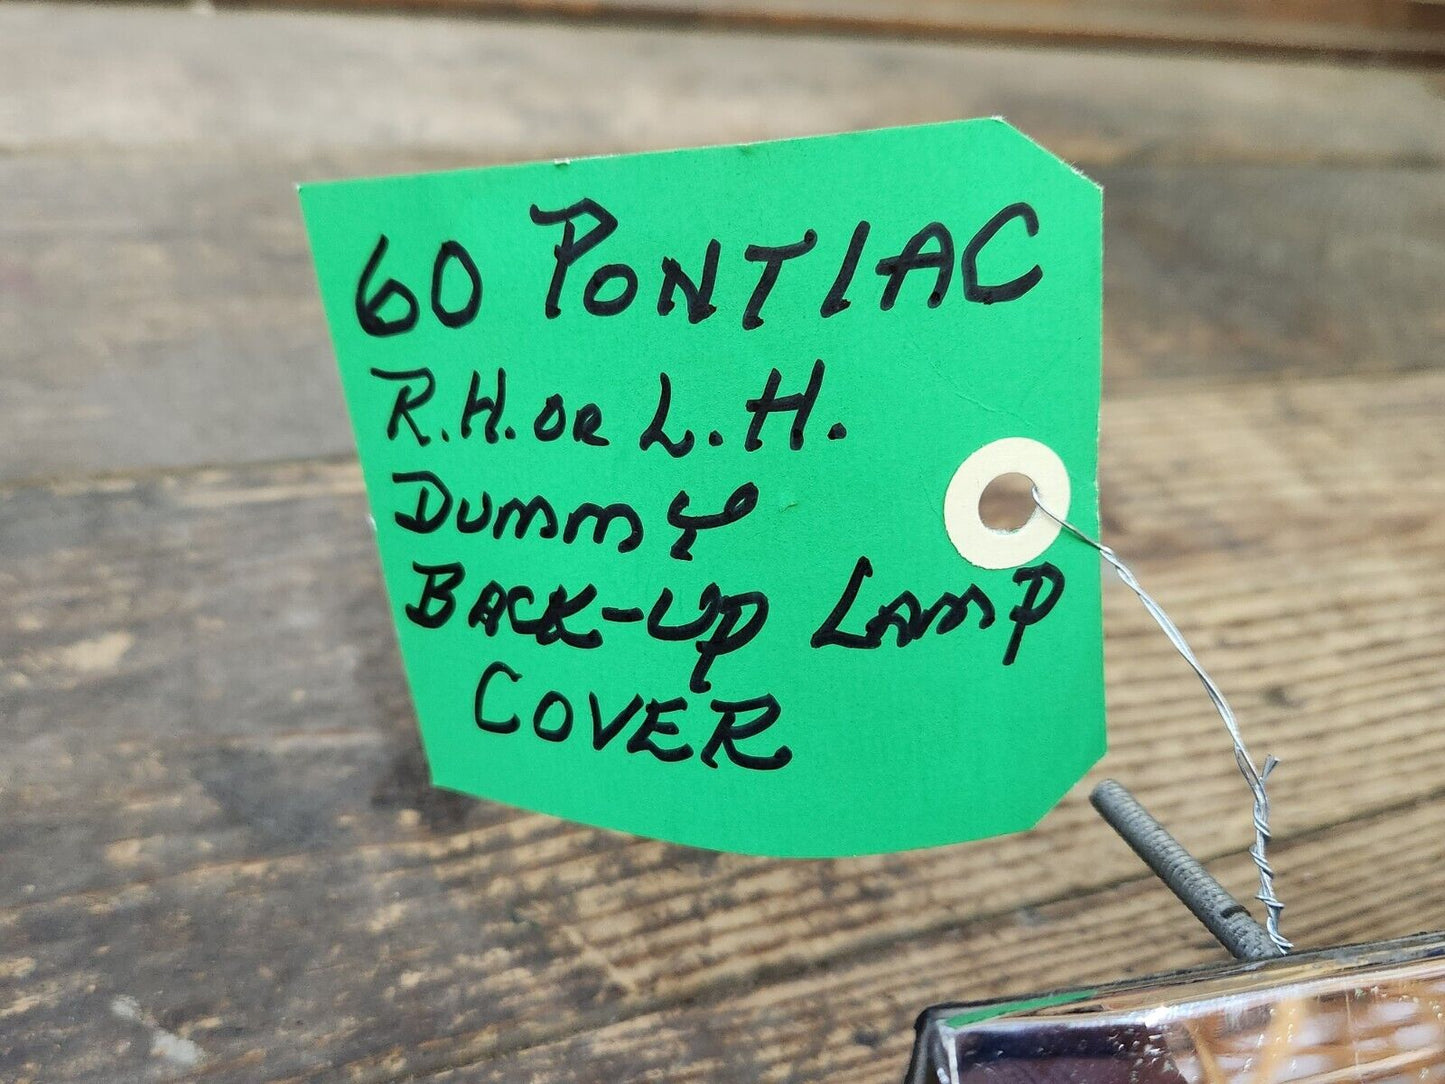 60 PONTIAC
R.H. OR L.H.
DUMMY
BACK-UP LAMP
COVER